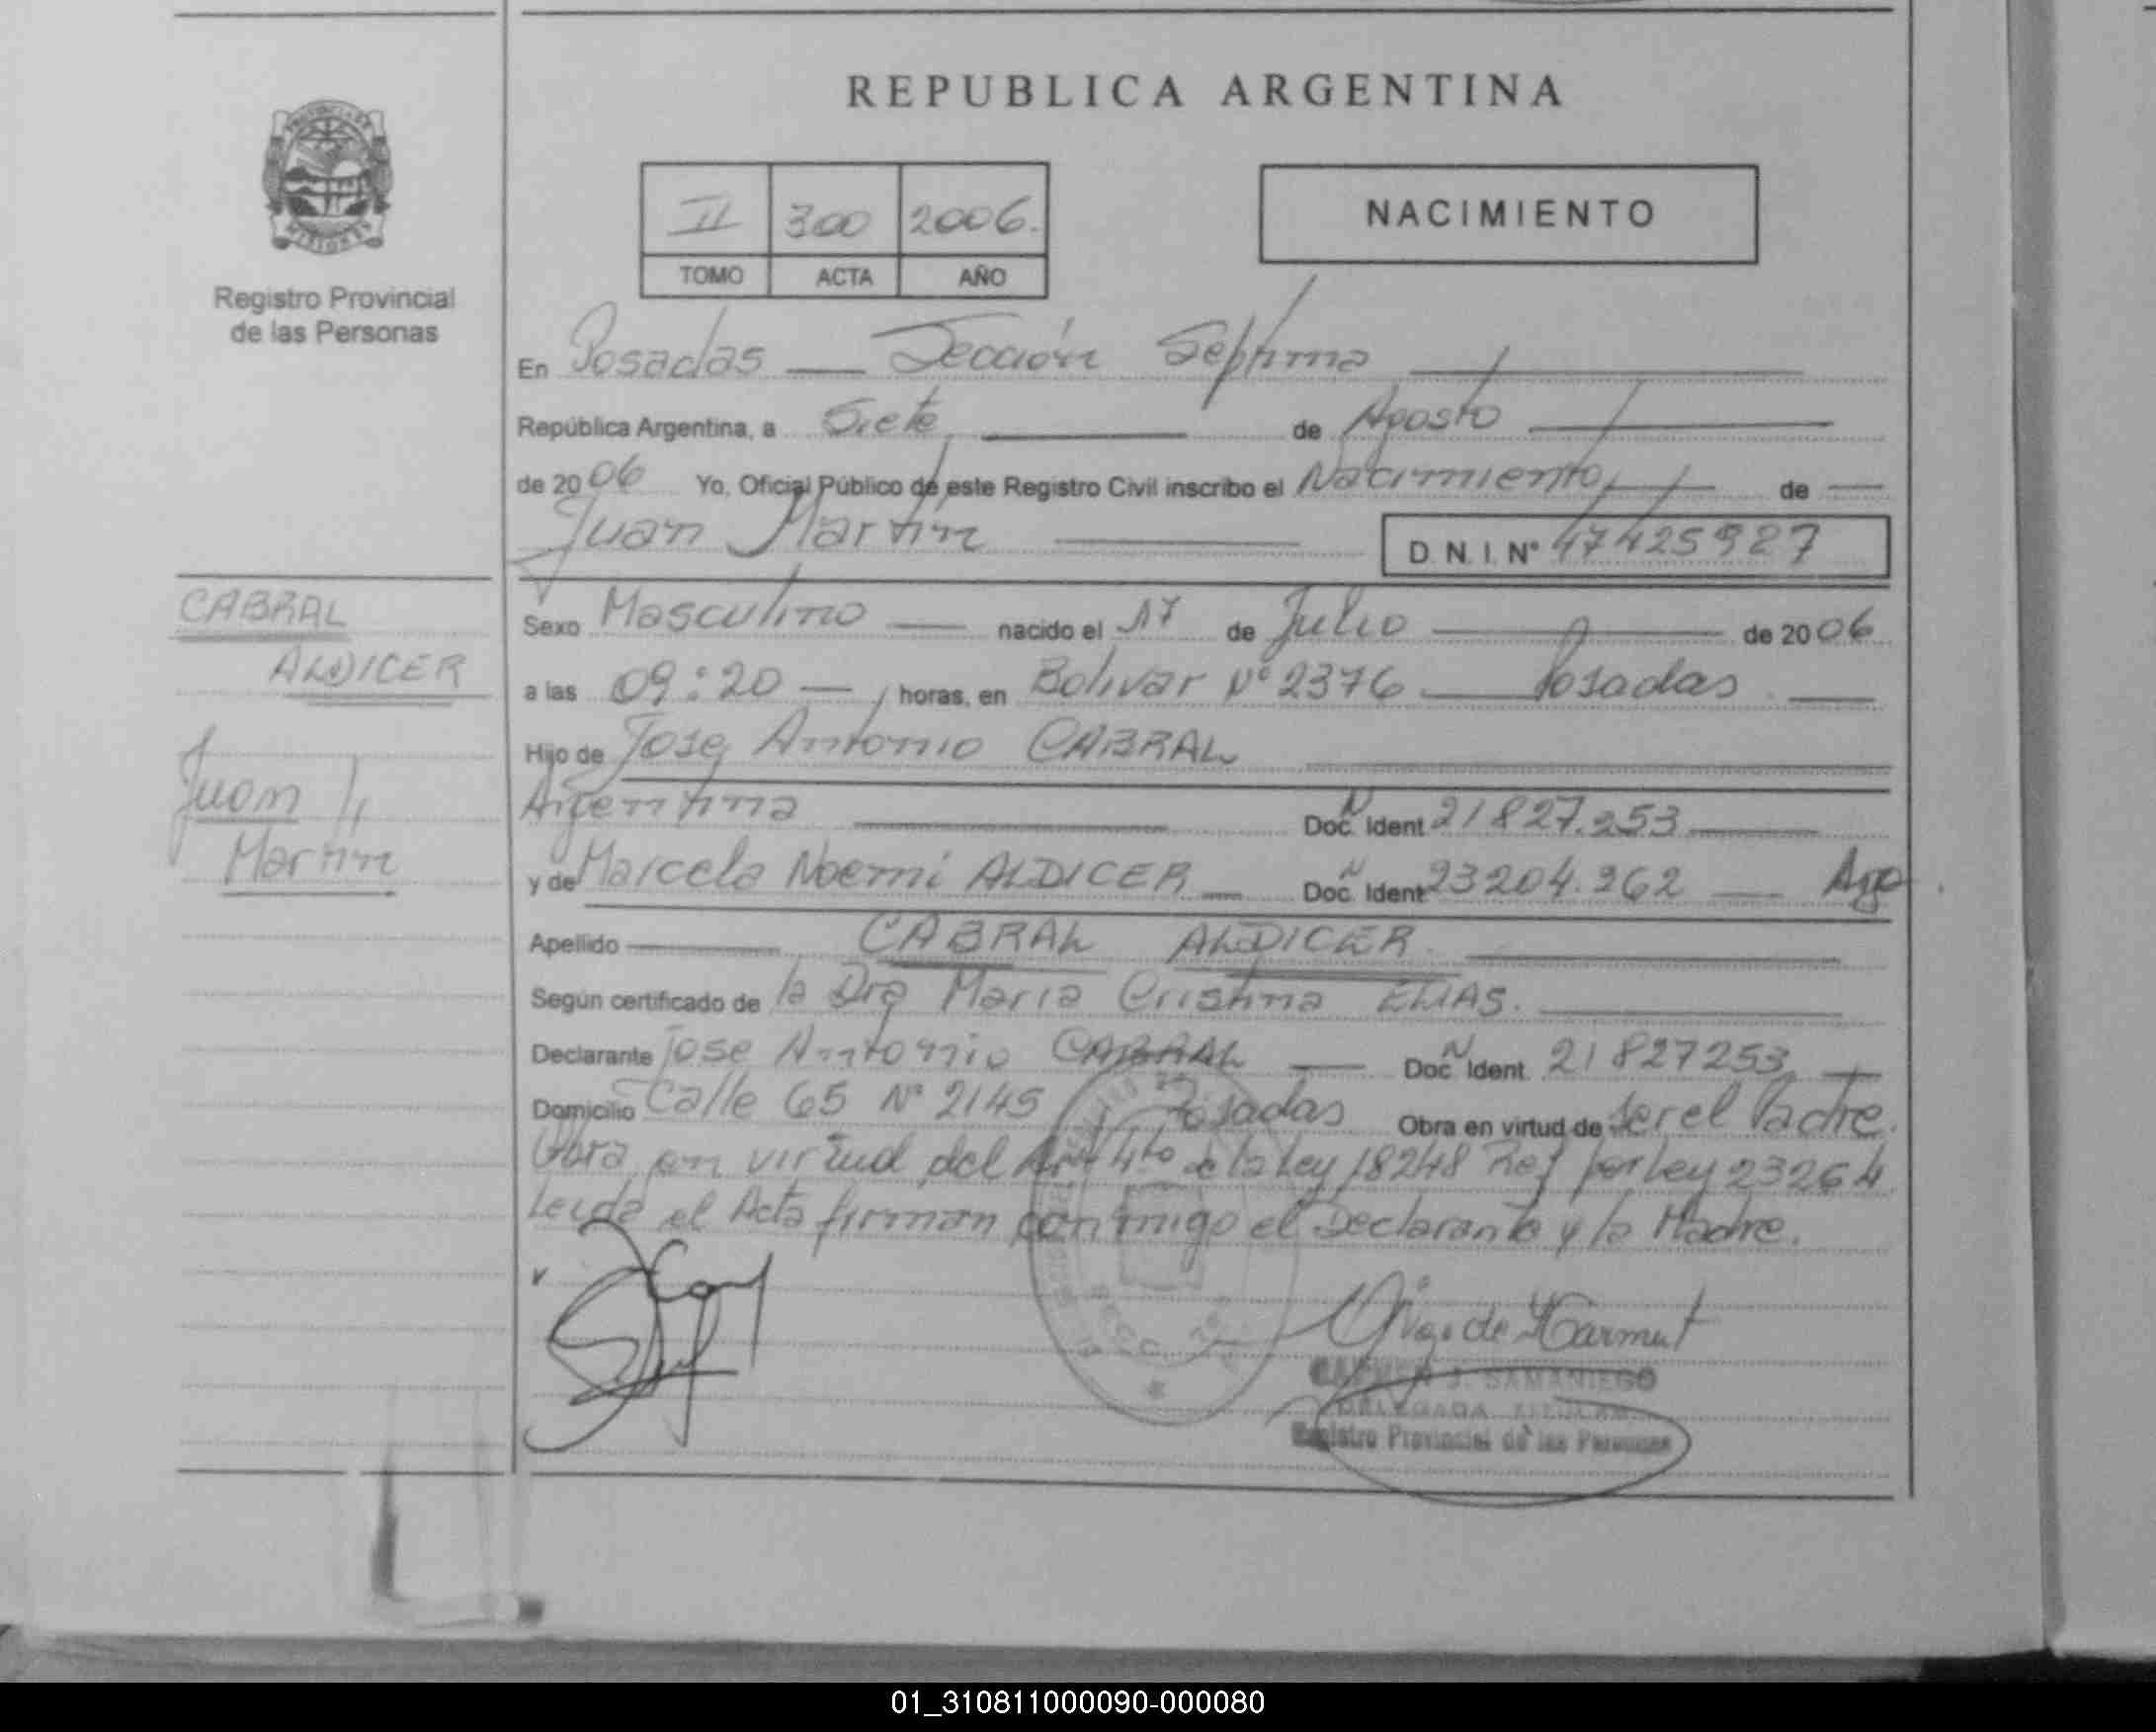 REPUBLICA ARGENTINA
PROVINCIA DE
MISIONES
Registro Provincial
de las Personas
II 300 2006.
TOMO ACTA AÑO
NACIMIENTO
En Posadas — Sección Septima
República Argentina, a Siete de Agosto
de 2006 Yo, Oficial Público de este Registro Civil inscribo el Nacimiento de
Juan Martín
D.N.I. Nº 47425927
CABRAL
ALDICER
Juan
Martín
Sexo Masculino nacido el 17 de Julio de 2006
a las 09:20 horas, en Bolivar Nº 2376 Posadas
Hijo de Jose Antonio CABRAL
Argentina Doc. Ident 21827.253
y de Marcela Noemí ALDICER Doc. Ident 23204.262 Arg
Apellido CABRAL ALDICER
Según certificado de la Dra Maria Cristina ELIAS.
Declarante Jose Antonio CABRAL Doc. Ident. 21827253
Domicilio Calle 65 Nº 2145 Posadas Obra en virtud de ser el Padre.
Obra en virtud del Art 4to de la Ley 18248 Ref por Ley 23264
Leida el Acta firman conmigo el Declarante y la Madre.
CARMEN J. SAMANIEGO
DELEGADA TITULAR
Registro Provincial de las Personas
01_310811000090-000080